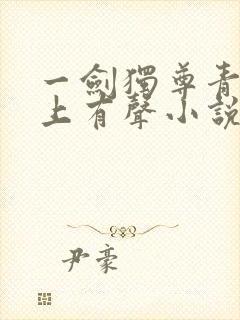 一劍獨尊青
上有聲小說
尹豪